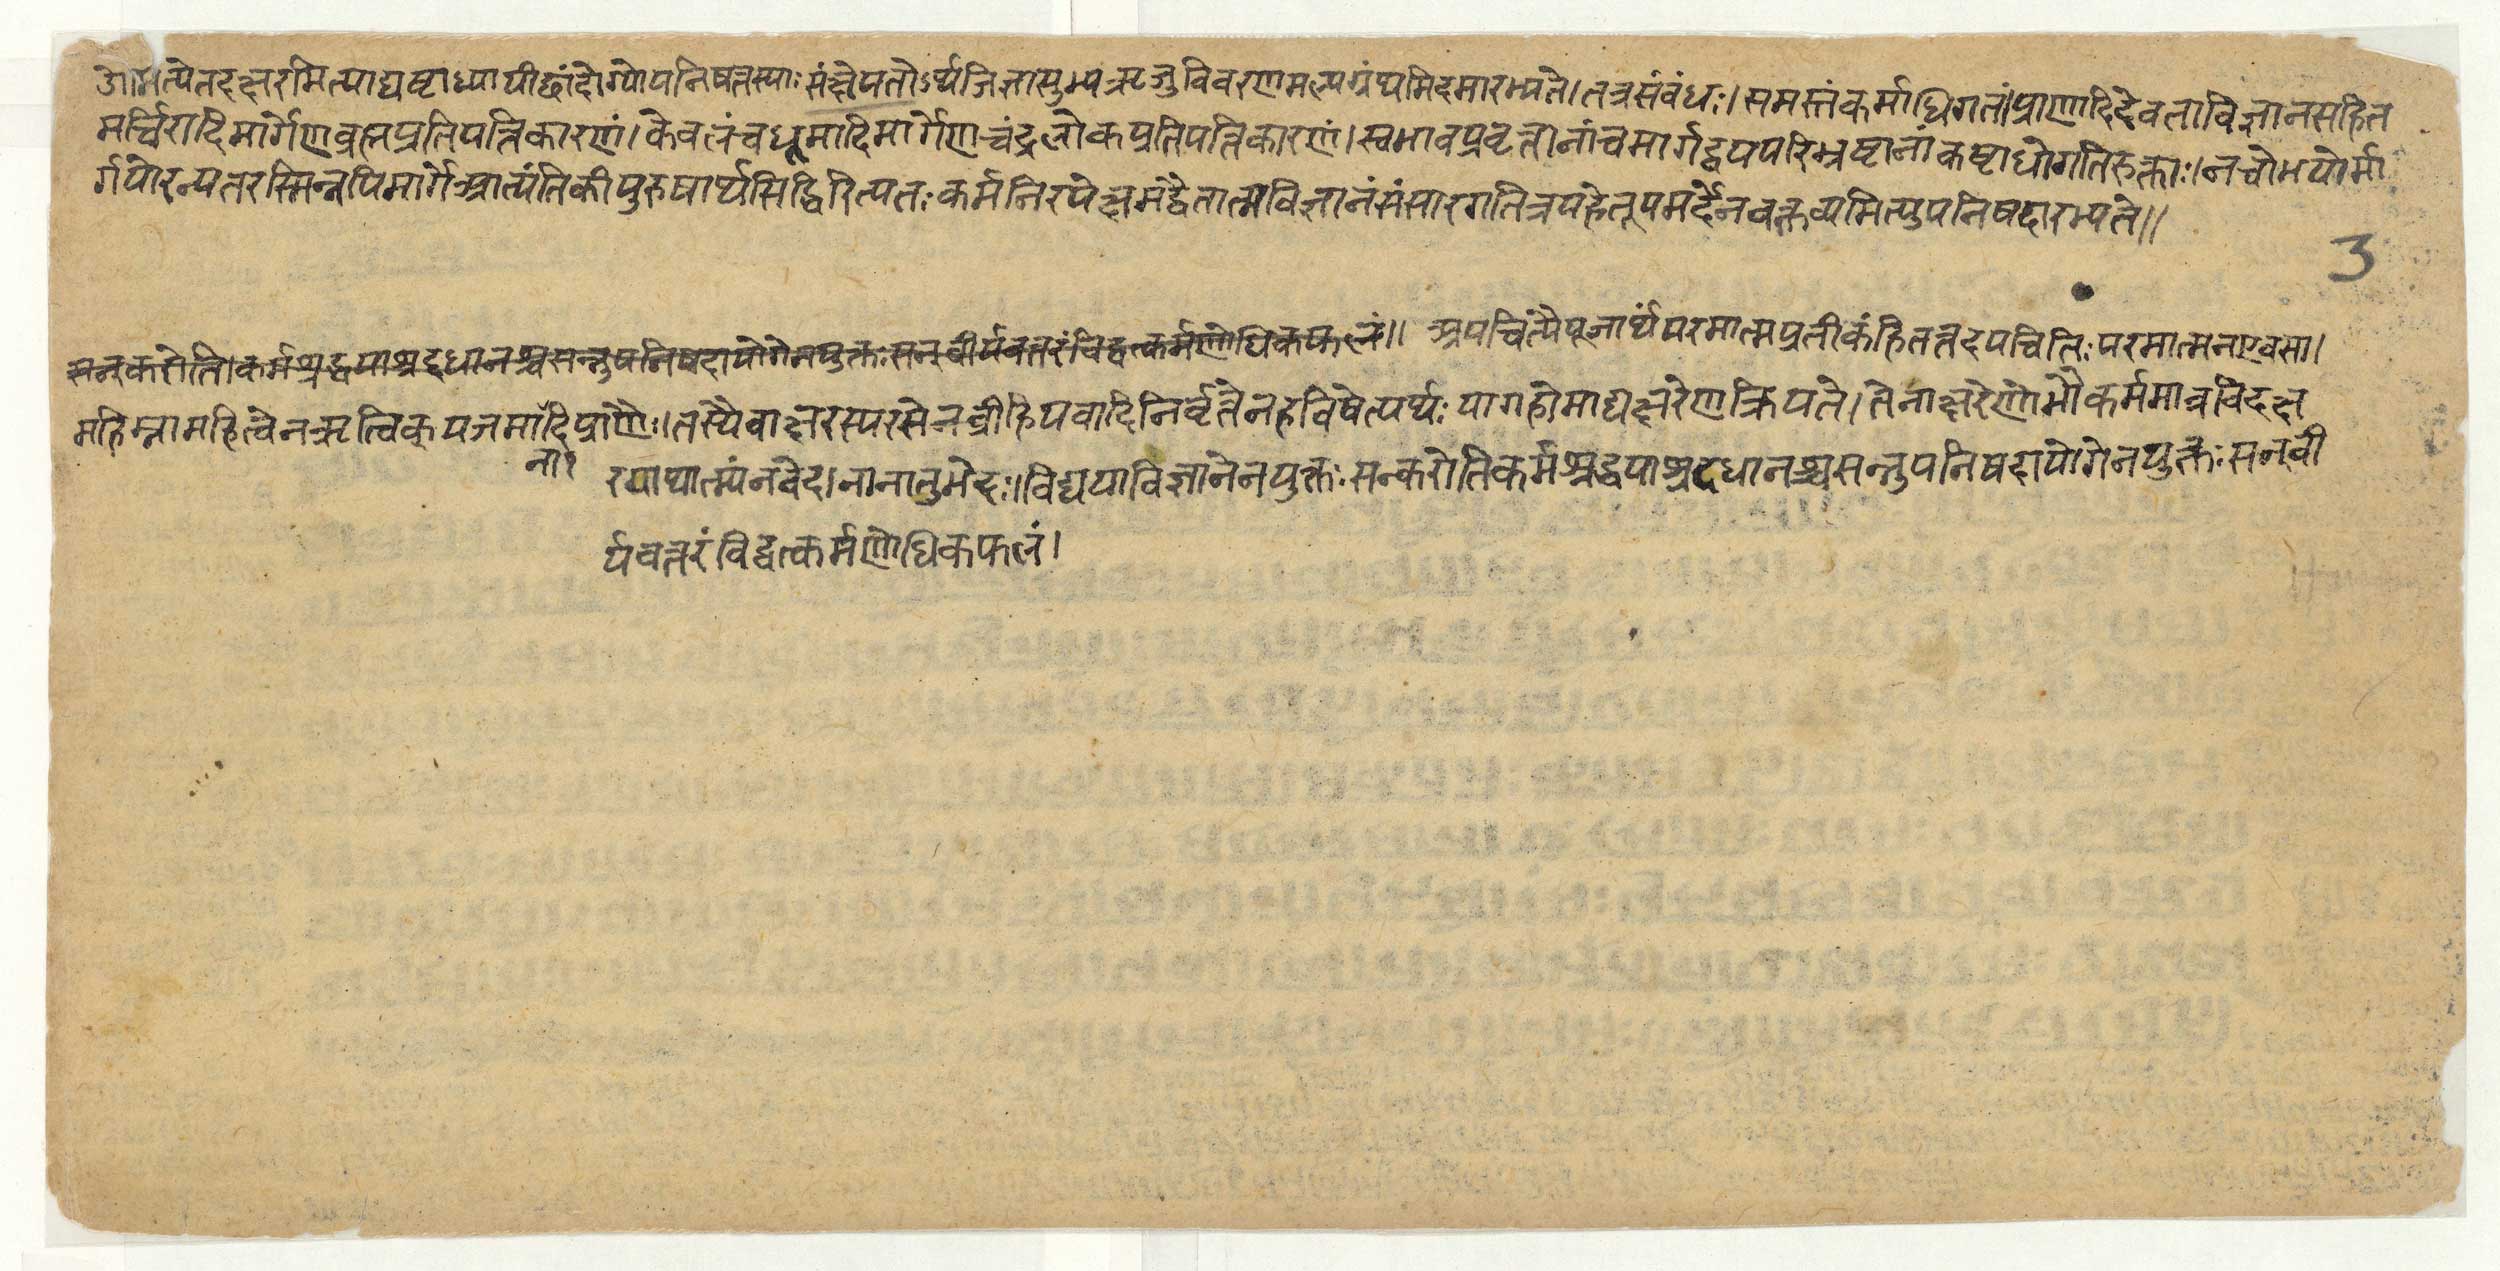 ओमित्येतदक्षरमित्याद्यष्टाध्यायीछांदोग्योपनिषत्तस्याः संक्षेपतोऽर्थजिज्ञासुभ्यऋजुविवरणमल्पग्रंथमिदमारभ्यते।तत्रसंबंधः।समस्तंकर्माधिगतं।प्राणादिदेवताविज्ञानसहित
मर्चिरादिमार्गेणब्रह्मप्रतिपत्तिकारणं।केवलंचधूमादिमार्गेणचंद्रलोकप्रतिपत्तिकारणं।स्वभावप्रवृत्तानांचमार्गद्वयपरिभ्रष्टानांकष्टाधोगतिरुक्ताः।नचोभयोर्मा
र्गयोरन्यतरस्मिन्नपिमार्गेआत्यंतिकीपुरुषार्थसिद्धिरित्यतःकर्मनिरपेक्षमद्वैतात्मविज्ञानंसंसारगतित्रयहेतूपमर्देनवक्तव्यमित्युपनिषदारभ्यते॥
3
सन्करोति।कर्मश्रद्धयाश्रद्दधानश्चसन्नुपनिषदायोगेनयुक्तःसन्वीर्यवत्तरंविद्वत्कर्मणोधिकफलं॥ अपचित्यैपूजार्थंपरमात्मप्रतीकंहितत्तदपचितिःपरमात्मनाएवसा।
महिम्नामहित्वेनऋत्विक्यजमादिप्राणैः।तस्यैवाक्षरस्यरसेनव्रीहियवादिनिर्वृत्तेनहविषेत्यर्थः यागहोमाद्यक्षरेणक्रियते।तेनाक्षरेणोभौकर्ममात्रविदक्ष
ना१
रयाथात्म्यंनवेद।नानातुभेदः।विद्ययाविज्ञानेनयुक्तःसन्करोतिकर्मश्रद्धयाश्रद्दधानश्चसन्नुपनिषदायोगेनयुक्तःसन्वी
र्यवत्तरंविद्वत्कर्मणोधिकफलं।